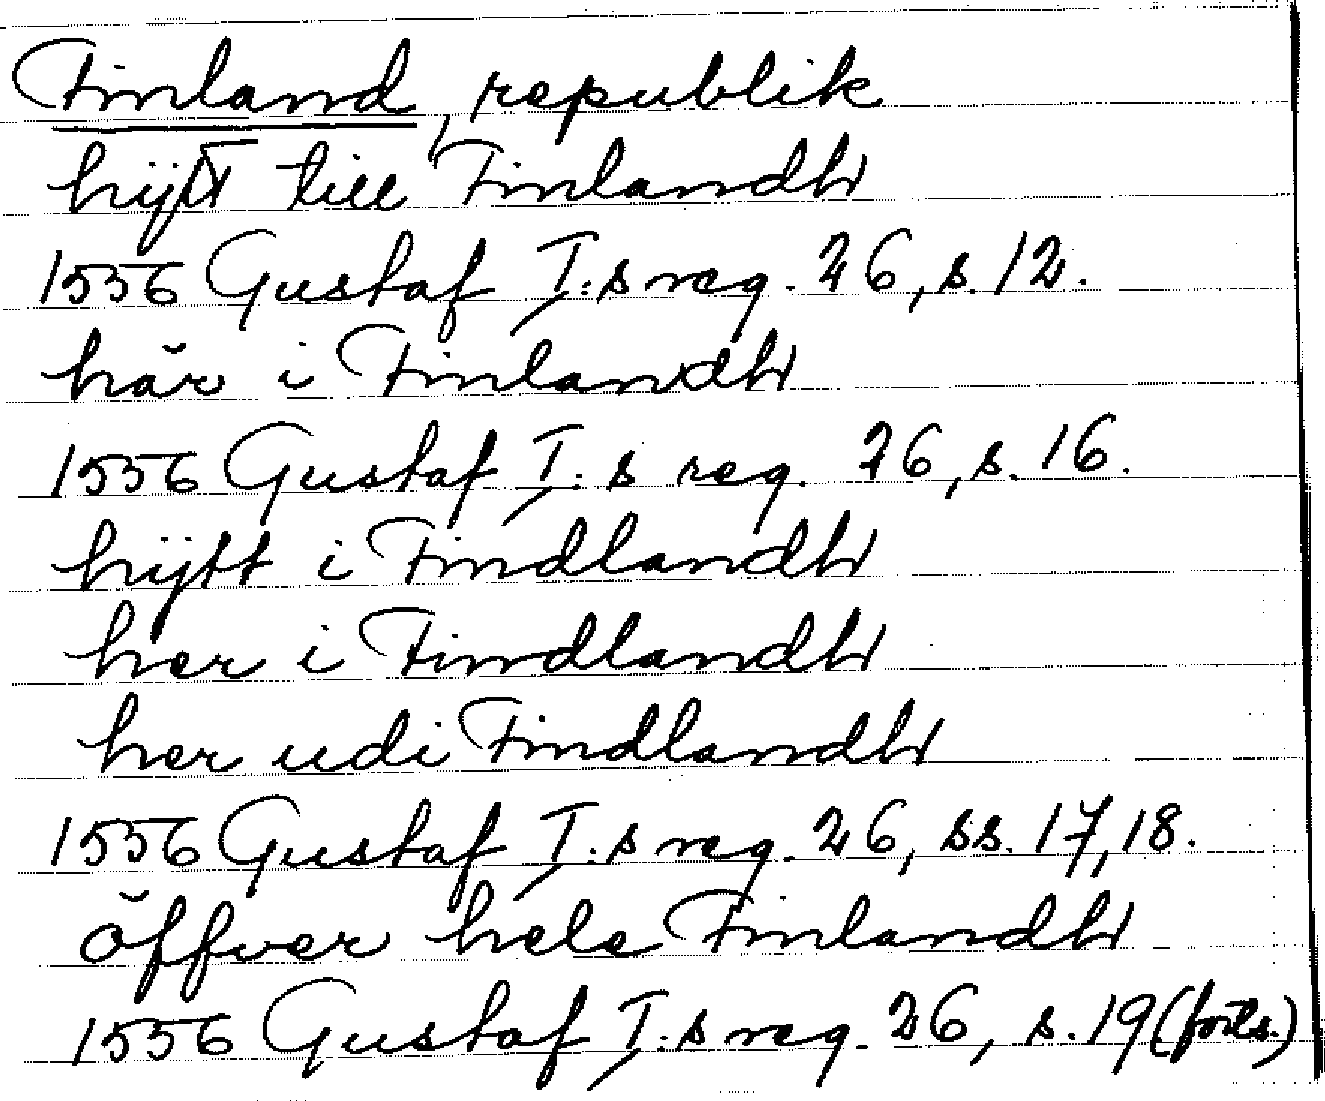 Finland, republik
hijtt till Finlandh
1556 Gustaf I:s reg. 26, s. 12.
här i Finlandh
1556 Gustaf I:s reg. 26, s. 16.
hijtt i Findlandh
her i Findlandh
her udi Findlandh
1556 Gustaf I:s reg. 26, ss. 17, 18.
öffver hele Finlandh
1556 Gustaf I:s reg. 26, s. 19 (forts.)